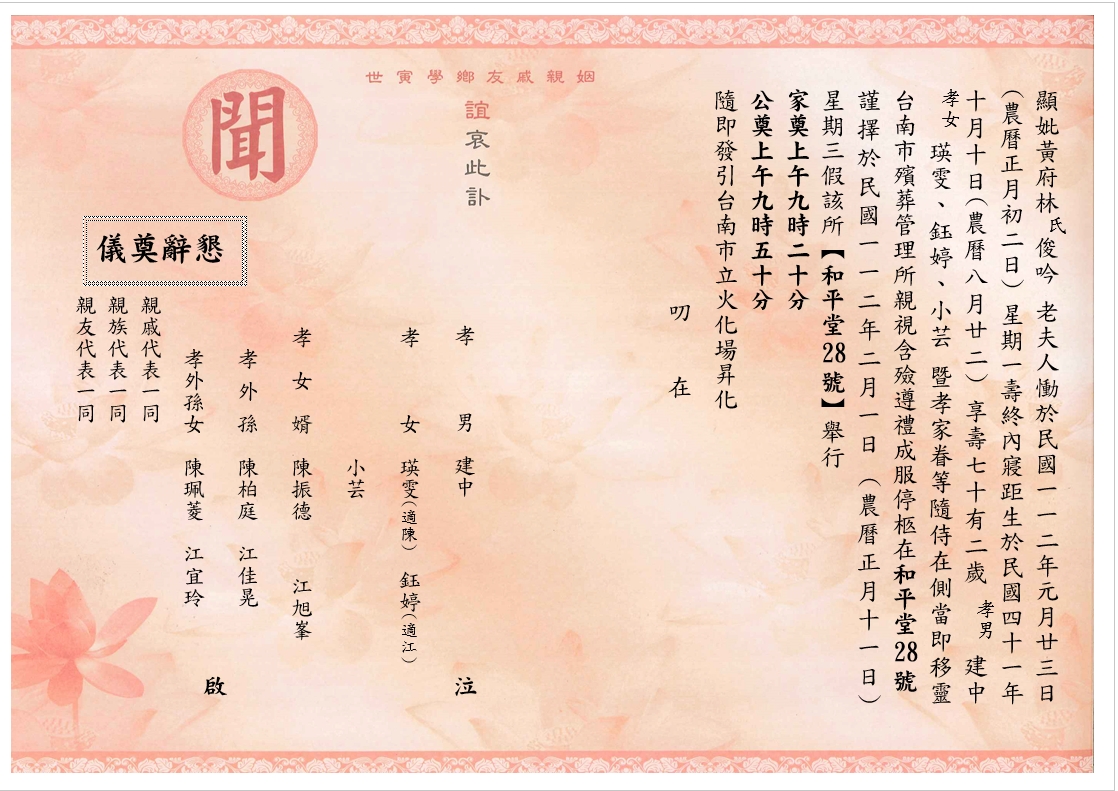 顯妣黃府林氏俊吟 老夫人慟於民國一一二年元月廿三日
（農曆正月初二日）星期一壽終內寢距生於民國四十一年
十月十日（農曆八月廿二）享壽七十有二歲 孝男 建中
孝女 瑛雯、鈺婷、小芸 暨孝家眷等隨侍在側當即移靈
台南市殯葬管理所親視含殮遵禮成服停柩在和平堂28號
謹擇於民國一一二年二月一日（農曆正月十一日）
星期三假該所【和平堂28號】舉行
家奠上午九時二十分
公奠上午九時五十分
隨即發引台南市立火化場昇化
叨在
姻親戚友鄉學寅世
誼哀此訃
孝男 建中 泣
孝女 瑛雯（適陳） 鈺婷（適江）
小芸
孝女婿 陳振德 江旭峯
孝外孫 陳柏庭 江佳晃
孝外孫女 陳珮菱 江宜玲
啟
聞
懇辭奠儀
親戚代表一同
親族代表一同
親友代表一同